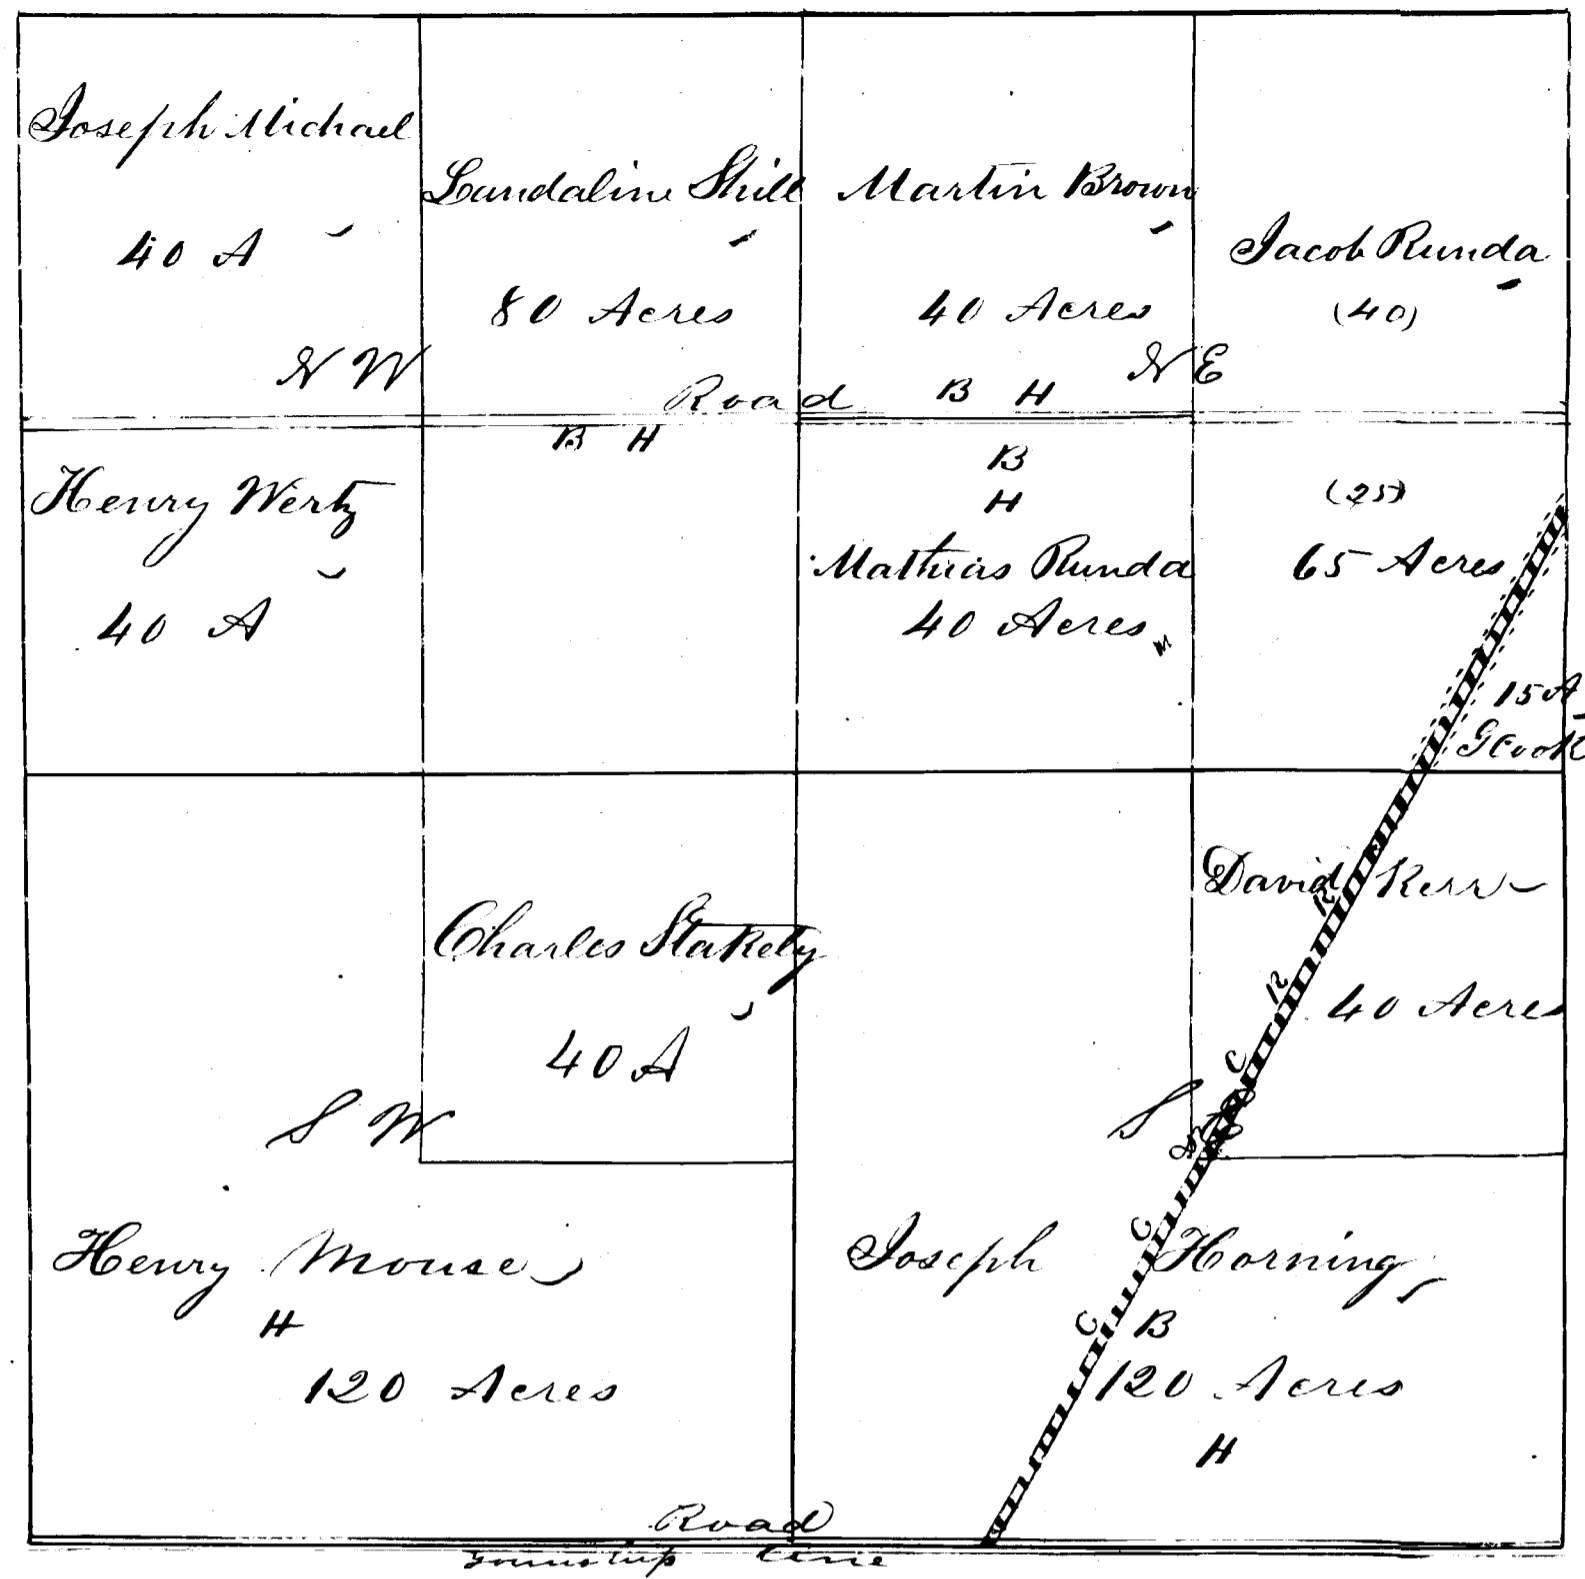 Joseph Michael
40 A
N W
Landaline Shill
80 Acres
Martin Brown
40 Acres
N E
Jacob Runda
(40)
Road
B H
B H
Henry Wertz
40 A
B
H
Mathias Runda
40 Acres
(25)
65 Acres
15 A
G Cook
Charles Stakely
40 A
S W
David Kerr
R
R
40 Acres
C
S
Henry Mouse
H
120 Acres
C
Joseph Horning
C
B
120 Acres
H
Road
Township Line